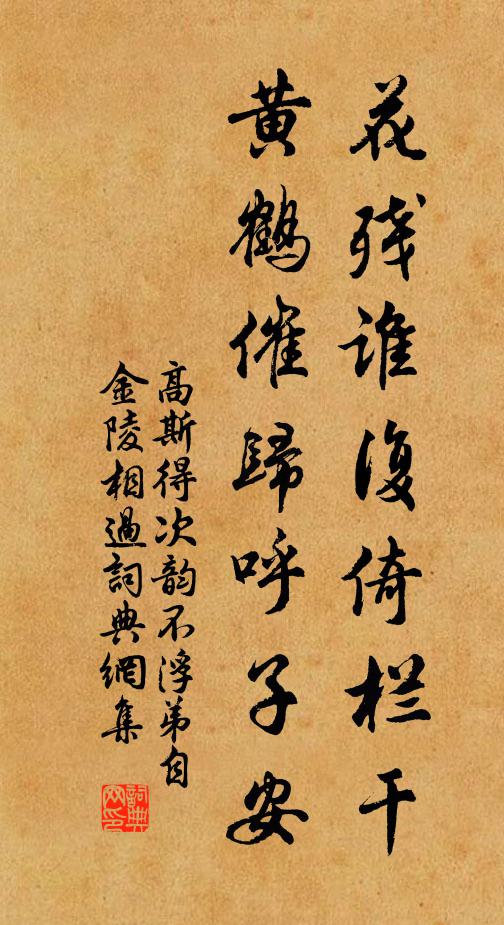 花残谁复倚栏干
黄鹤催歸呼子安
高斯得次韵不浮弟自
金陵相過詞典網集
詞典网印